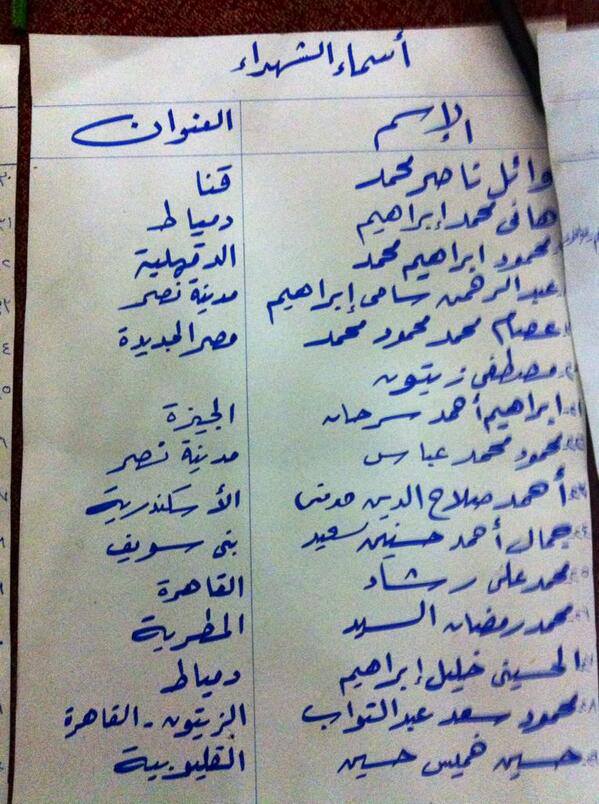 أسماء الشهداء
الإسم العنوان
وائل ناصر محمد قنا
هانى محمد إبراهيم دمياط
محمود ابراهيم محمد الدقهلية
عبدالرحمن سامى إبراهيم مدينة نصر
عصام محمد محمود محمد مصر الجديدة
مصطفى زيتون
ابراهيم أحمد سرحان الجيزة
محمود محمد عباس مدينة نصر
أحمد صلاح الدين الأسكندرية
جمال أحمد حسنين سعيد بنى سويف
محمد على رشاد القاهرة
محمد رمضان السيد المطرية
الحسينى خليل إبراهيم دمياط
محمود سعد عبدالتواب الزيتون - القاهرة
حسين خميس حسين القليوبية